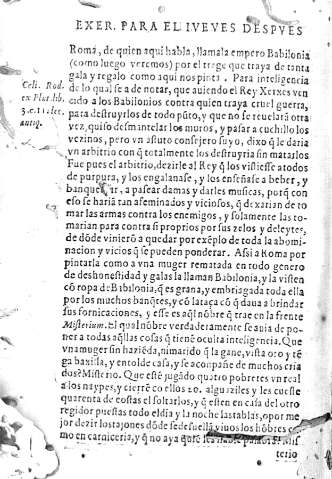 EXER. PARA EL IVEVES DESPVES
Roma, de quien aqui habla, llamala empero Babilonia
(como luego veremos) por el trage que traya de tanta
gala y regalo como aqui nos pinta. Para inteligencia
de lo qual se a de notar, que auiendo el Rey Xerxes ven
cido a los Babilonios contra quien traya cruel guerra,
para destruyrlos de todo pũto, y que no se reuelarã otra
vez, quiso desmantelar los muros, y pasar a cuchillo los
vezinos, pero vn astuto consejero suyo, dixo q̃ le daria
vn arbitrio con q̃ totalmente los destruyria sin matarlos
Fue pues el arbitrio, dezirle al Rey q̃ los vistiesse atodos
de purpura, y los engalanase, y los enseñase a beber, y
banquetear, a pasear damas y darles musicas, porq̃ con
eso se hariã tan afeminados y viciosos, q̃ dexarian de to
mar las armas contra los enemigos, y solamente las to-
marian para contra si proprios por sus zelos y deleytes,
de dõde vinierõ a quedar por exẽplo de toda la abomi-
nacion y vicios q̃ se pueden ponderar. Assi a Roma por
pintarla como a vna muger rematada en todo genero
de deshonestidad y galas la llaman Babilonia, y la visten
cõ ropa de Bibilonia, q̃ es grana, y embriagada toda ella
por los muchos banq̃tes, y cõ la taça cõ q̃ daua a brindar
sus fornicaciones, y esse es aql̃ nõbre q̃ trae en la frente
Misterium. El qual nõbre verdaderamente se auia de po-
ner a todas aq̃llas cosas q̃ tienẽ oculta inteligencia. Que
vna muger sin haziẽda, ni marido q̃ la gane, vista oro y tẽ
ga baxilla, y entolde casa, y se acompañe de muchos cria
dos? Misterio. Que estè jugãdo quatro pobretes vn real
a los naypes, y cierrẽ cõ ellos 20. alguaziles y les cueste
quarenta de costas el soltarlos, y q̃ estẽn en casa del otro
regidor puestas todo el dia y la noche las tablas, o por me
jor dezir los tajones dõde se desuella viuos los hõbres co
mo en carniceria, y q̃ no aya quiẽ les hable palabra? Mis
terio
Celi. Rod.
ex Plat. lib.
3.c.11. lec.
antiq.